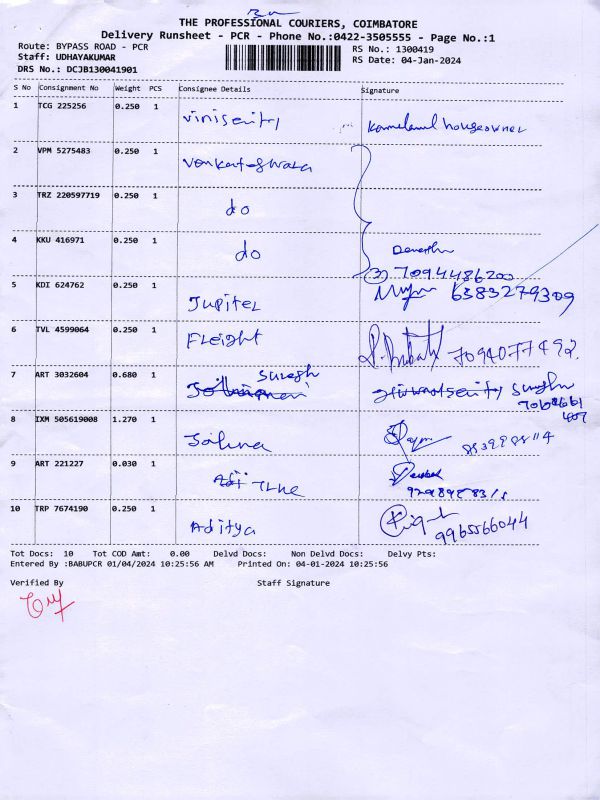 THE PROFESSIONAL COURIERS, COIMBATORE
Delivery Runsheet - PCR - Phone No.:0422-3505555 - Page No.:1
Route: BYPASS ROAD - PCR
RS No.: 1300419
Staff: UDHAYAKUMAR
RS Date: 04-Jan-2024
DRS No.: DCJB130041901
S No Consignment No Weight PCS Consignee Details Signature
1 TCG 225256 0.250 1
2 VPM 5275483 0.250 1 Venkateshwara
3 TRZ 220597719 0.250 1 do
4 KKU 416971 0.250 1 do
③ 7094486200
5 KDI 624762 0.250 1 Jupiter 6383279309
6 TVL 4599064 0.250 1 Fleight 7094077492.
7 ART 3032604 0.680 1 Suresh
8 IXM 505619008 1.270 1
9 ART 221227 0.030 1
10 TRP 7674190 0.250 1 Aditya 9965566044
Tot Docs: 10 Tot COD Amt: 0.00 Delvd Docs: Non Delvd Docs: Delvy Pts:
Entered By :BABUPCR 01/04/2024 10:25:56 AM Printed On: 04-01-2024 10:25:56
Verified By Staff Signature